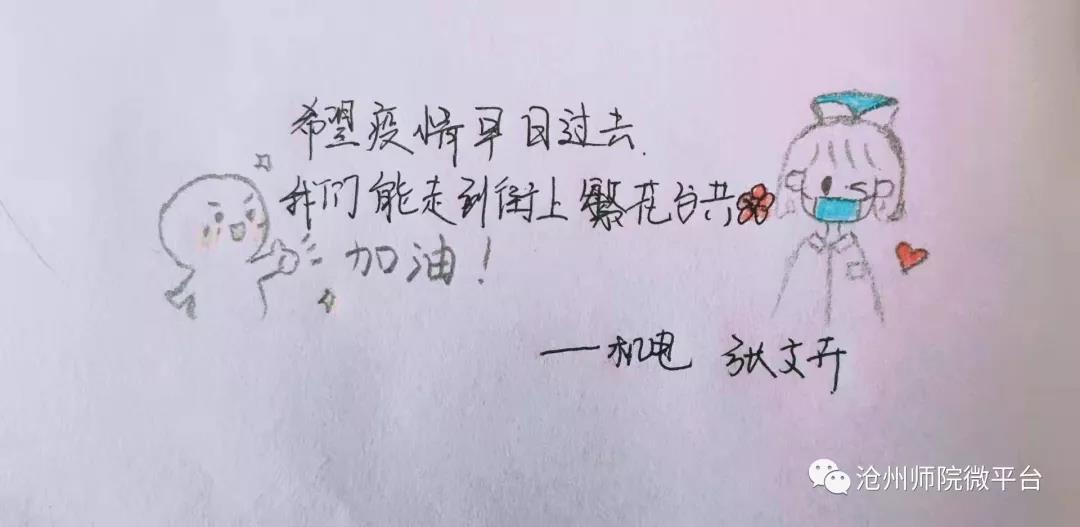 希望疫情早日过去.
我们能走到街上繁花台共
加油!
——机电 张文卉
沧州师院微平台